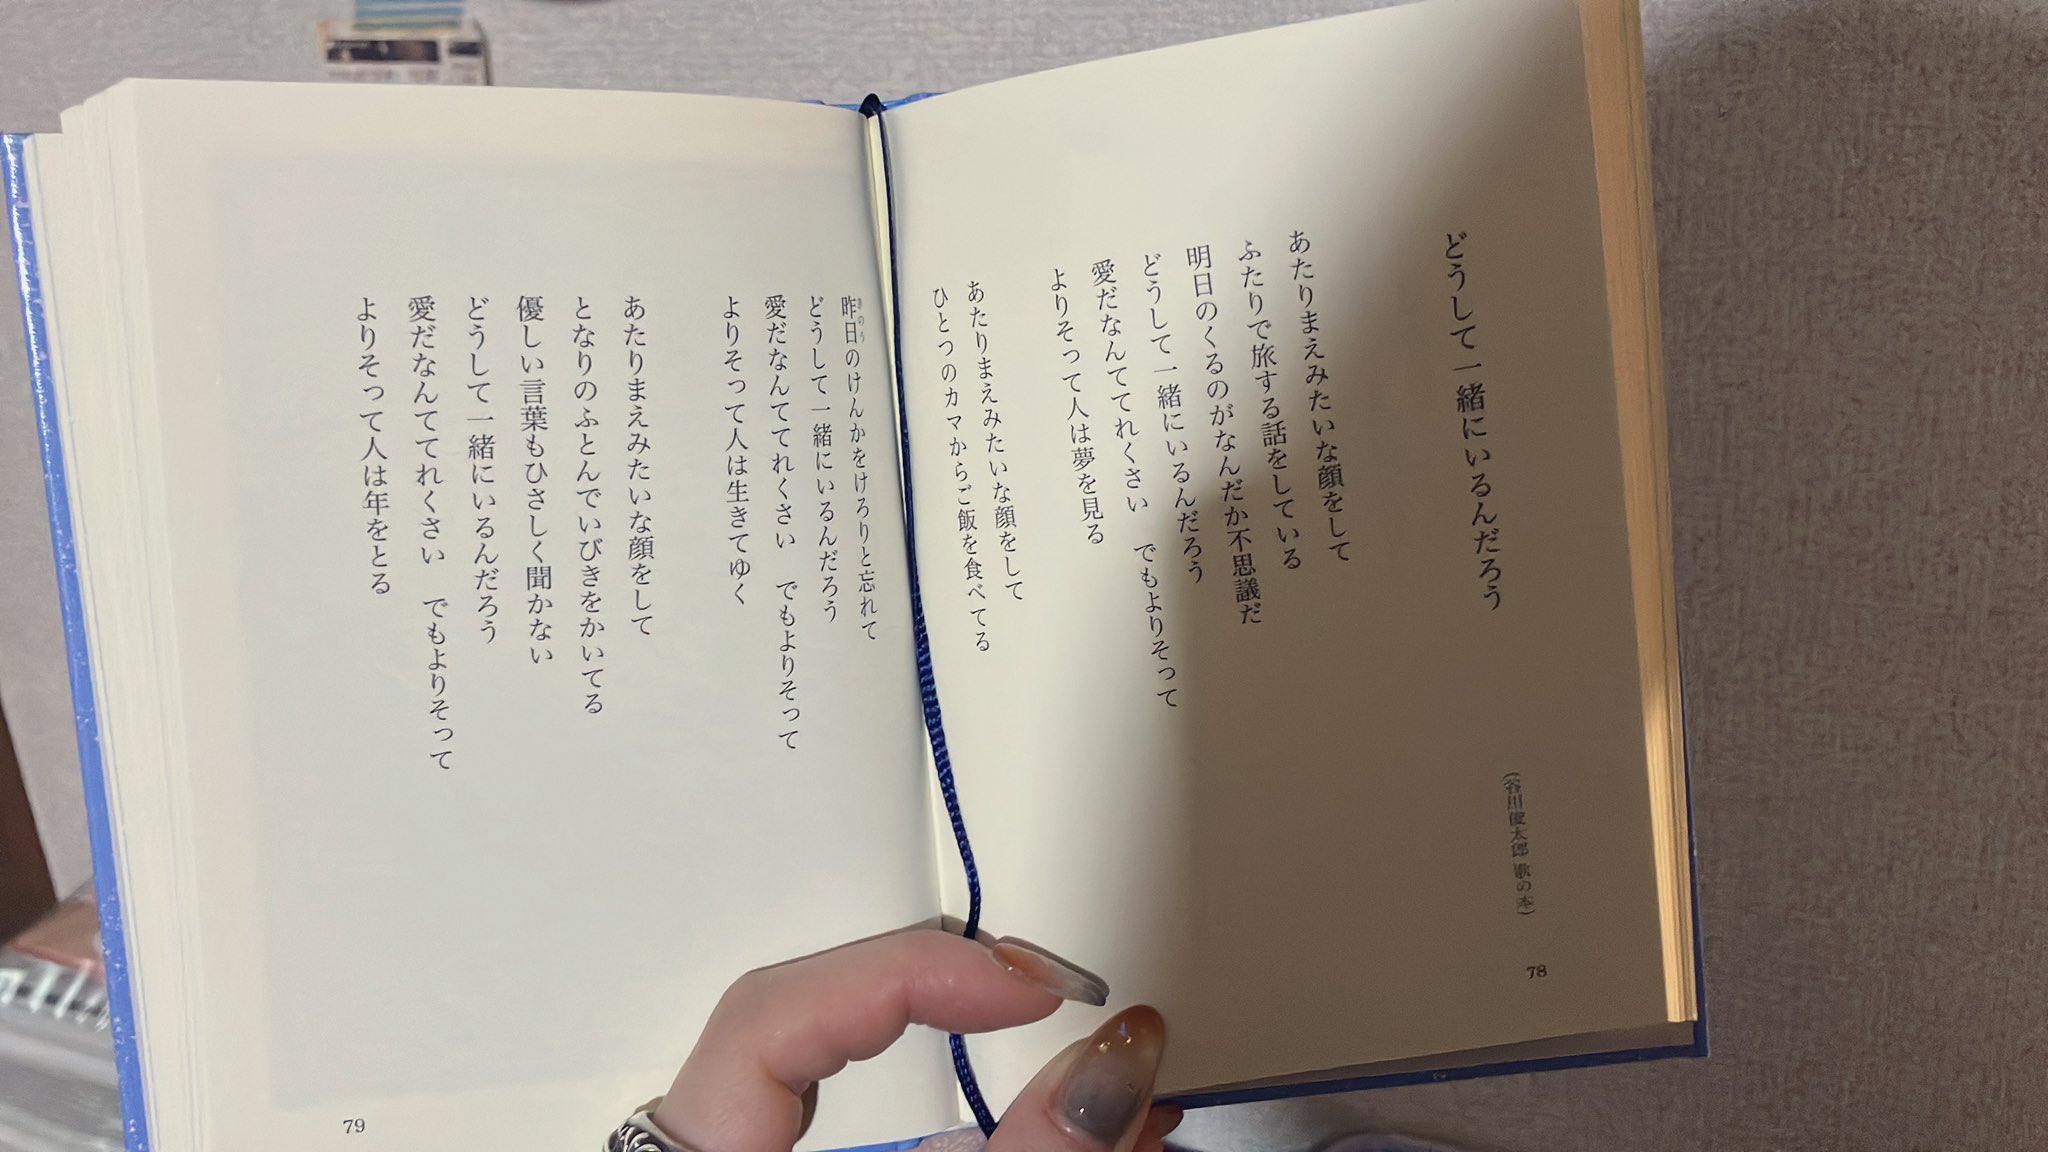 どうして一緒にいるんだろう
(谷川俊太郎 歌の本)
あたりまえみたいな顔をして
ふたりで旅する話をしている
明日のくるのがなんだか不思議だ
どうして一緒にいるんだろう
愛だなんててれくさい　でもよりそって
よりそって人は夢を見る
あたりまえみたいな顔をして
ひとつのカマからご飯を食べてる
78
昨日のけんかをけろりと忘れて
きのう
どうして一緒にいるんだろう
愛だなんててれくさい　でもよりそって
よりそって人は生きてゆく
あたりまえみたいな顔をして
となりのふとんでいびきをかいてる
優しい言葉もひさしく聞かない
どうして一緒にいるんだろう
愛だなんててれくさい　でもよりそって
よりそって人は年をとる
79